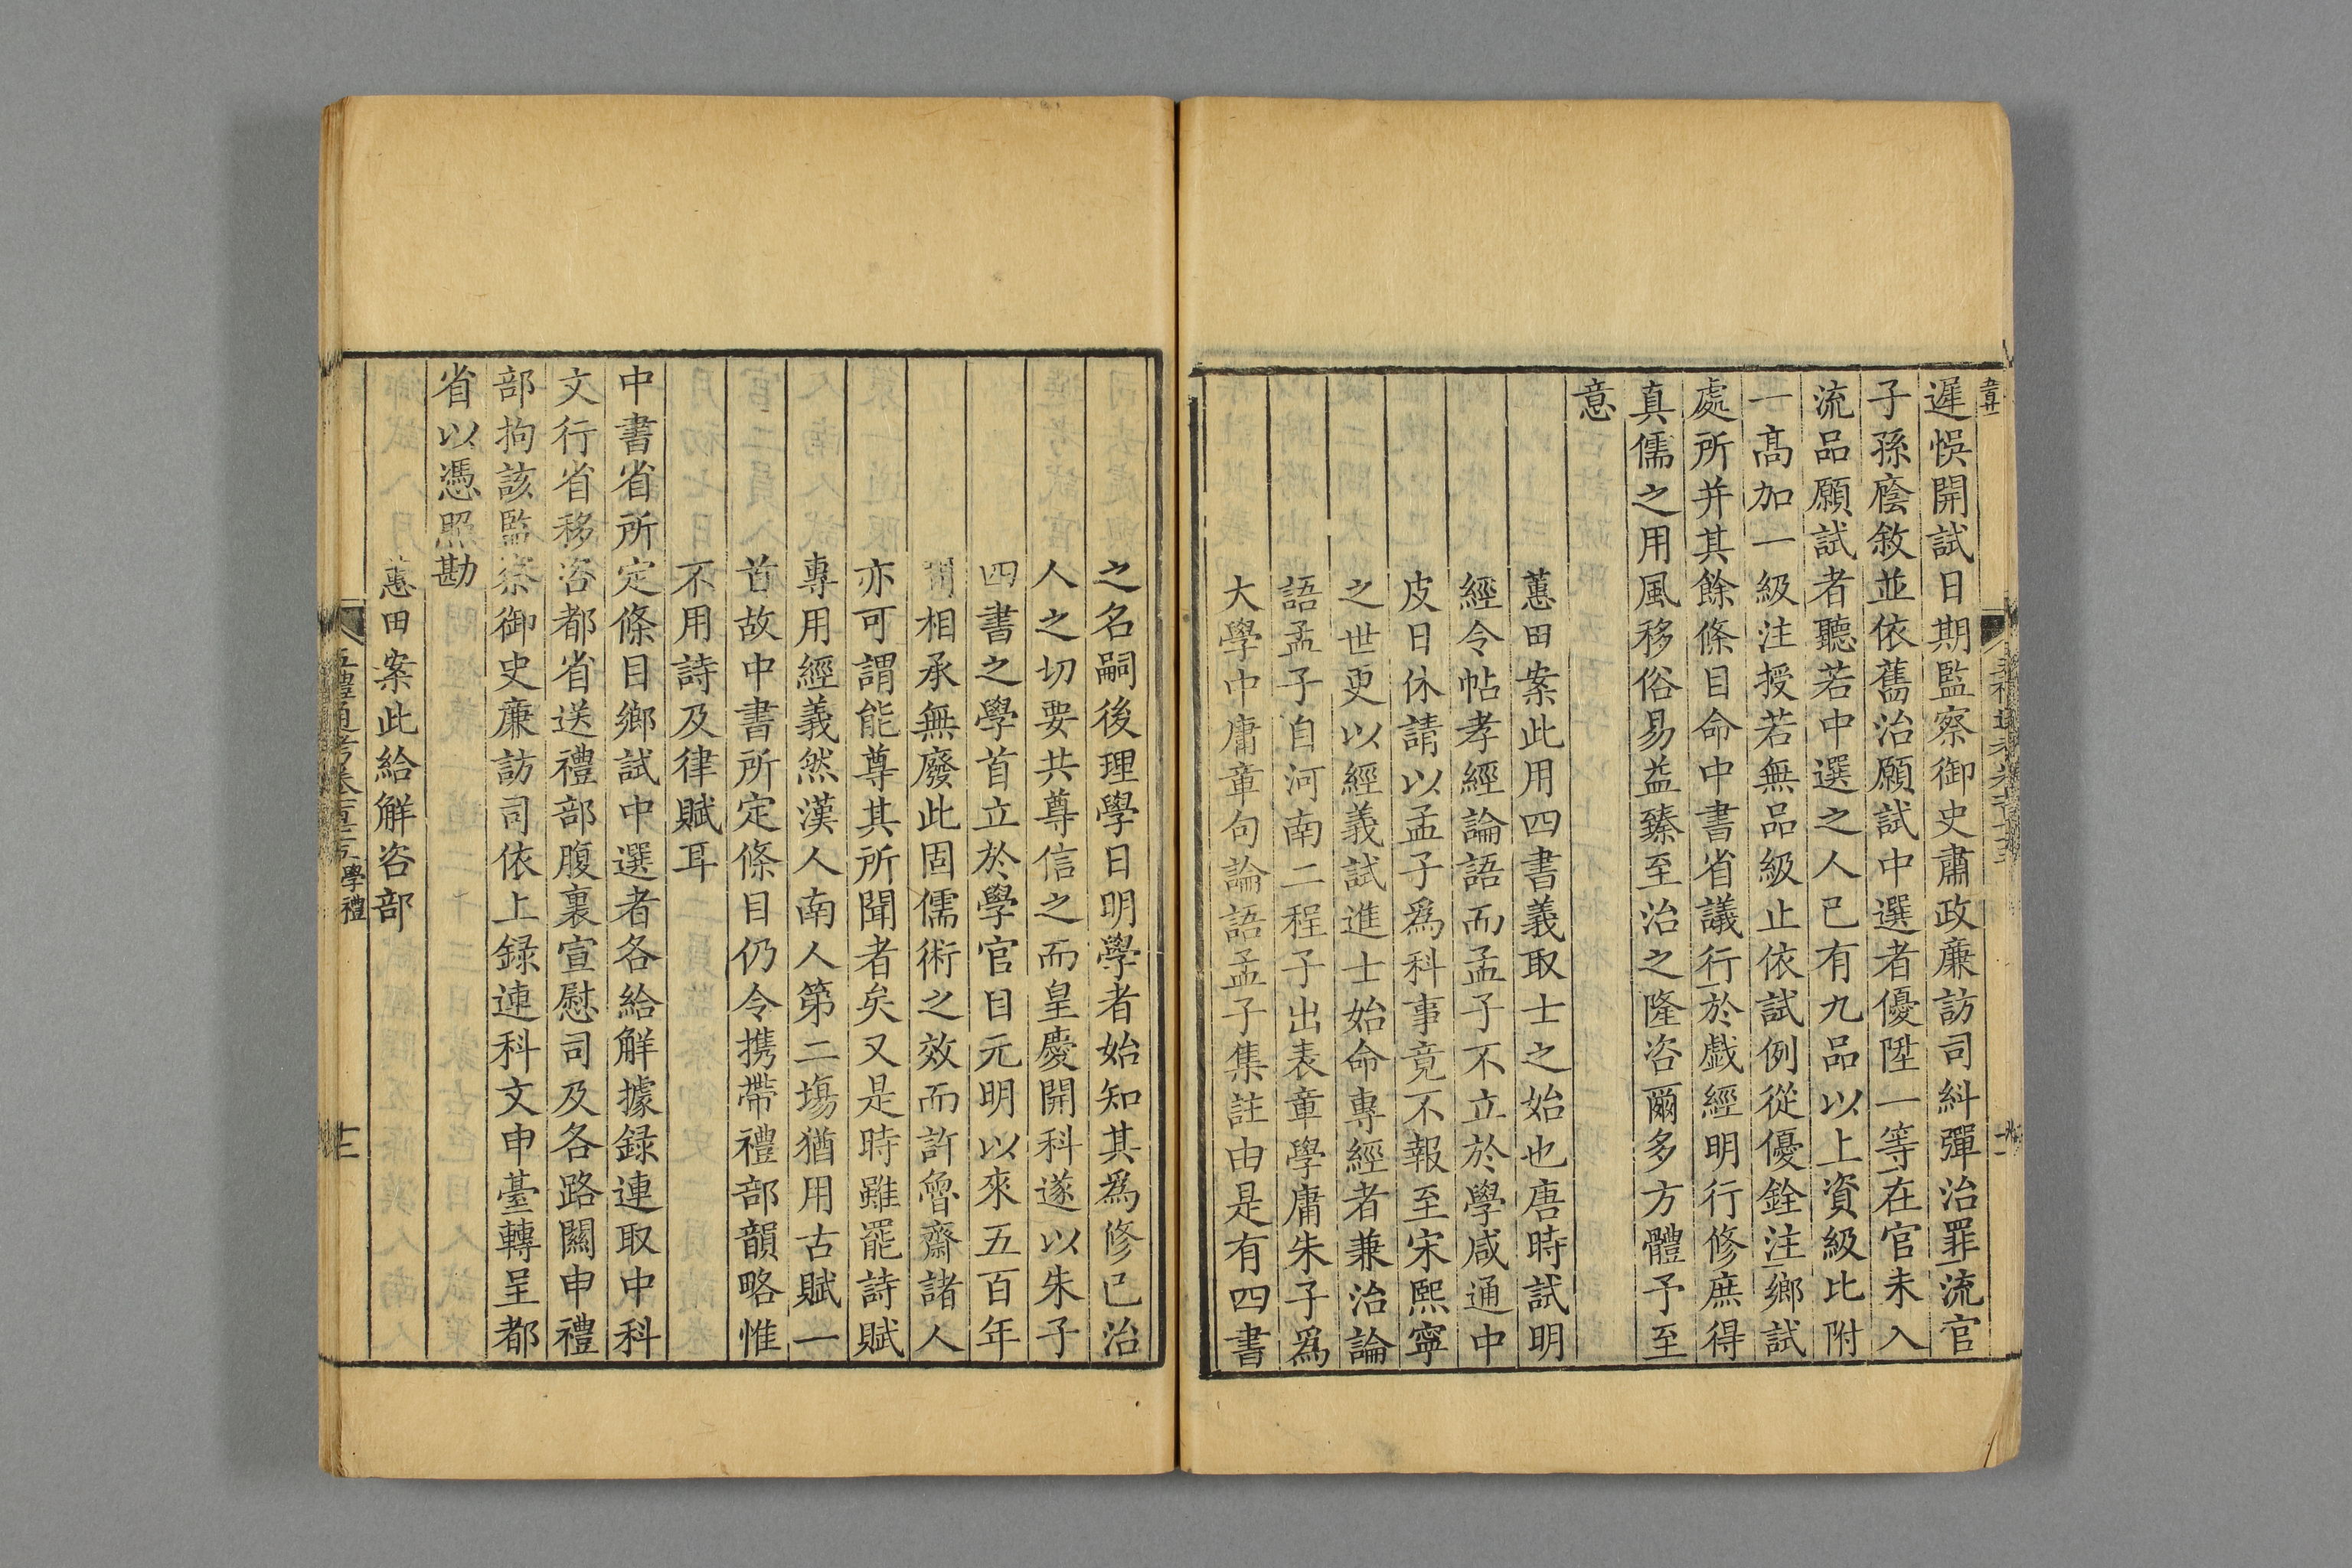 遲悞開試日期監察御史肅政廉訪司糾彈治罪流官
子孫廕敘並依舊治願試中選者優陞一等在官未入
流品願試者聽若中選之人已有九品以上資級比附
一高加一級注授若無品級止依試例從優銓注鄉試
處所并其餘條目命中書省議行於戱經明行修庶得
真儒之用風移俗易益臻至治之隆咨爾多方體予至
意
蕙田案此用四書義取士之始也唐時試明
經令帖孝經論語而孟子不立於學咸通中
皮日休請以孟子爲科事竟不報至宋熙寧
之世更以經義試進士始命專經者兼治論
語孟子自河南二程子出表章學庸朱子爲
大學中庸章句論語孟子集註由是有四書
之名嗣後理學日明學者始知其爲修已治
人之切要共尊信之而皇慶開科遂以朱子
四書之學首立於學官自元明以來五百年
間相承無廢此固儒術之效而許魯齋諸人
亦可謂能尊其所聞者矣又是時雖罷詩賦
專用經義然漢人南人第二塲猶用古賦一
首故中書所定條目仍令携帶禮部韻略惟
不用詩及律賦耳
中書省所定條目鄉試中選者各給解據録連取中科
文行省移咨都省送禮部腹裏宣慰司及各路關申禮
部拘該監察御史廉訪司依上録連科文申臺轉呈都
省以憑照勘
蕙田案此給解咨部
五禮通考卷一百七十三 學禮